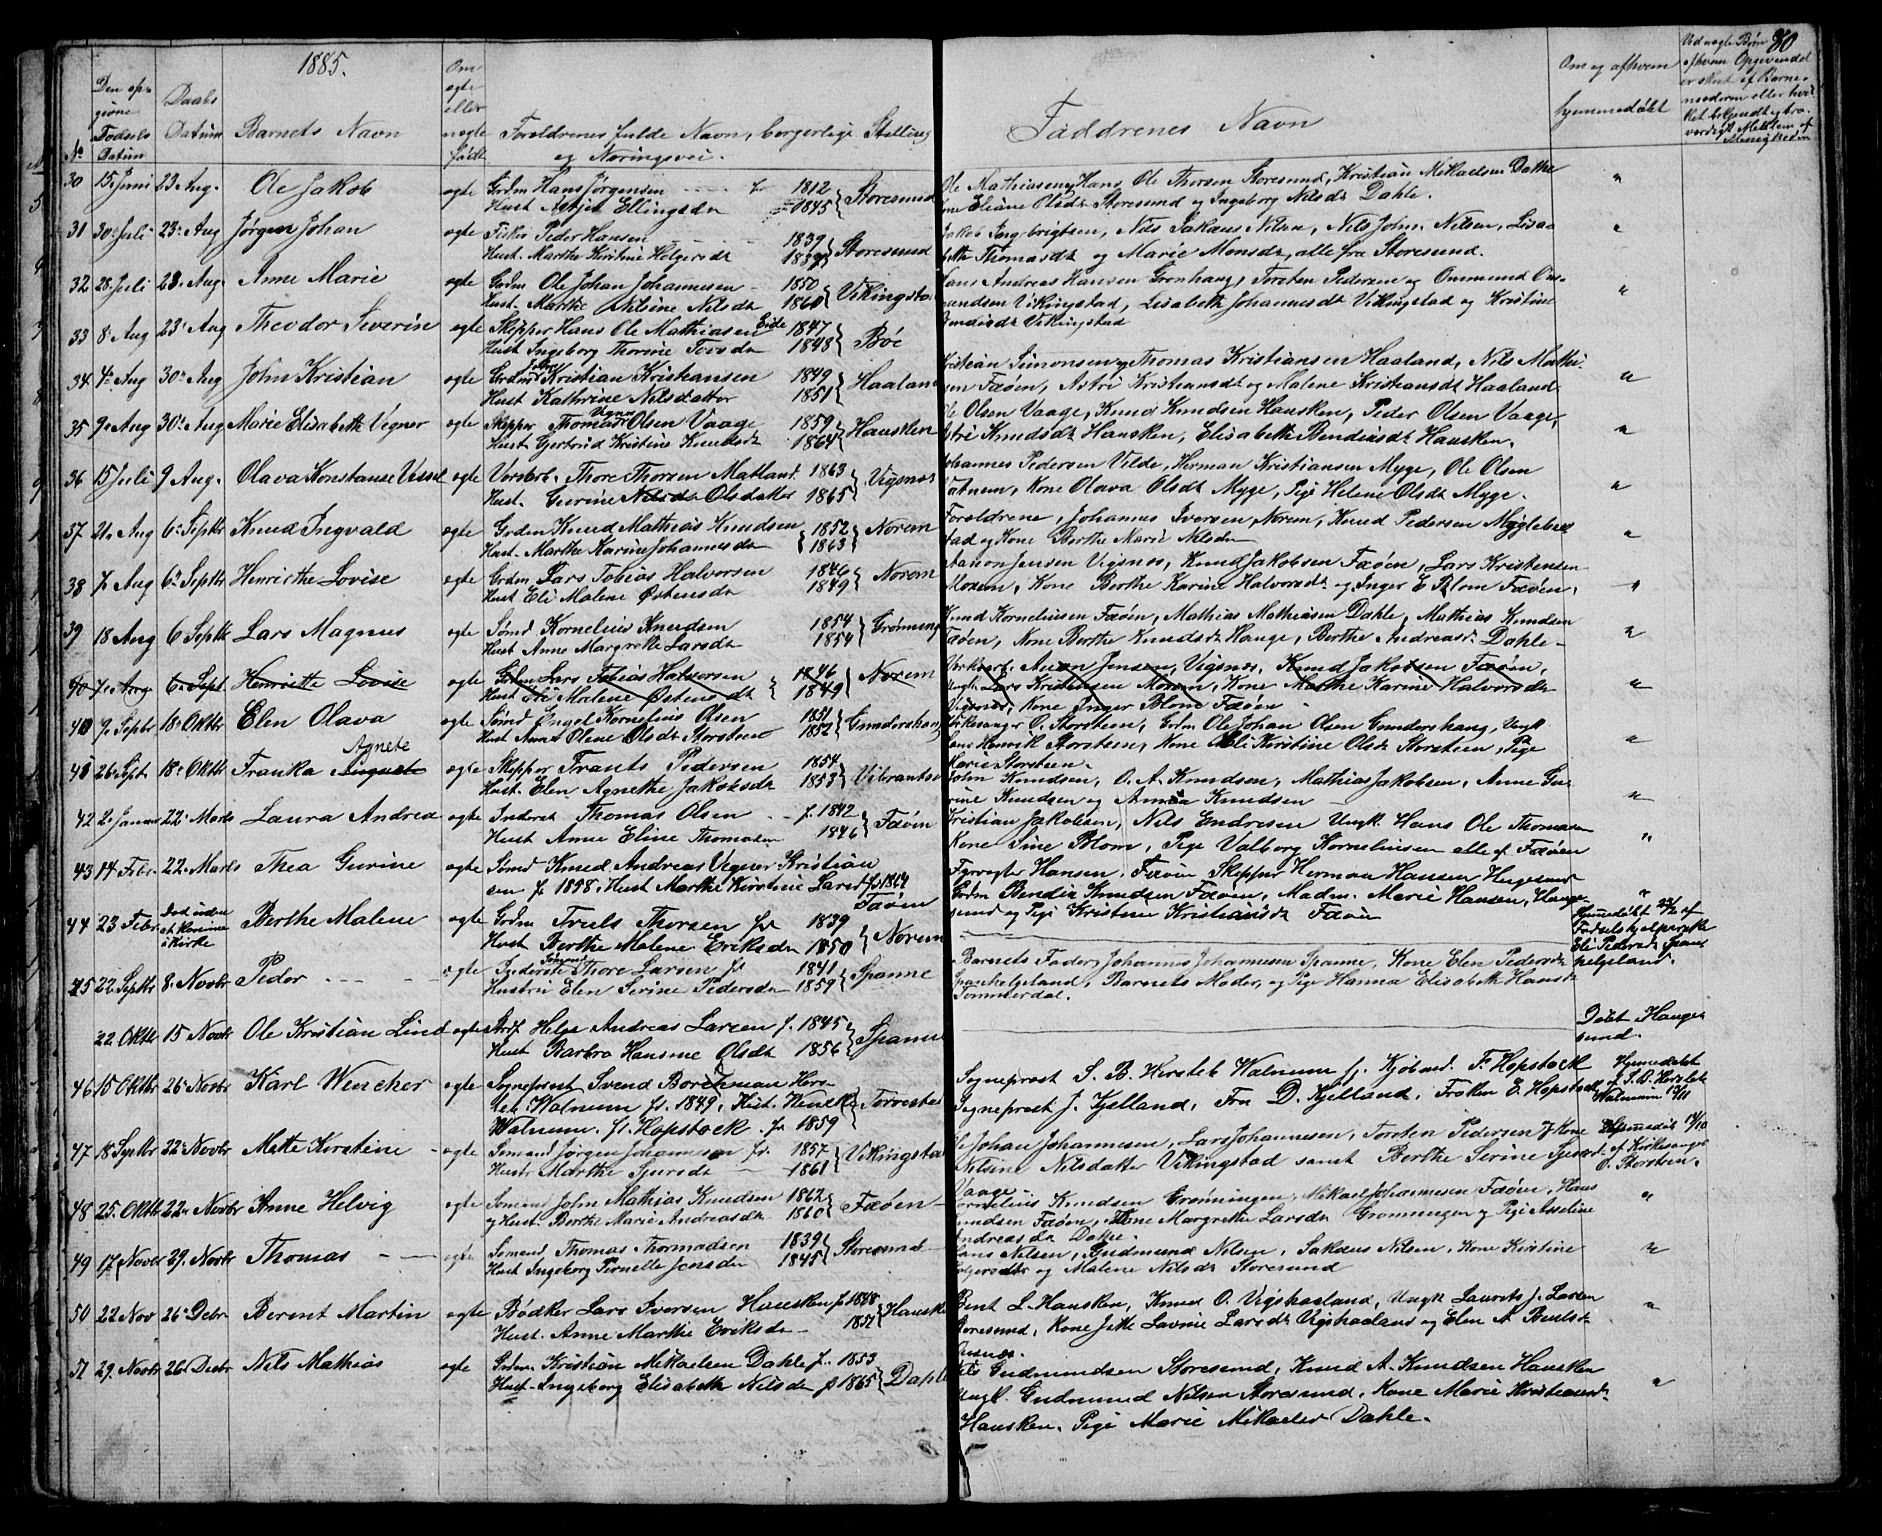 80
1885.
Den op-
givne
Fødsels
Datum
Daabs
Datum
Barnets Navn
Om
ægte
eller
uægte
født
Forældrenes fulde Navn, borgerlige Stilling
og Næringsvei.
Faddrenes Navn
Om og afhvem
hjemmedøbt
No
30 15 Juni 23 Aug. Ole Jakob ægte Grdm Hans Jørgensen f. 1812 Storesund
Hust Astrid Ellingsdr 1845
Ole Mathiasen, Hans Ole Thorsen Storesund, Kristian Mikaelsen Dahle
Kone Eliane Olsdr Storesund og Ingeborg Nilsdr Dahle.
31 30 Juli 23 Aug Jørgen Johan ægte Fisker Peder Hansen 1839 Storesund
Hust. Marthe Kirstine Helgesdr 1839
Jakob Ingebrigtsen, Nils Sakæus Nilsen, Nils John Nilsen, Lisa-
beth Thomasdr og Marie Monsdr, alle fra Storesund.
32 28 Juli 23 Aug. Anne Marie ægte Grdm Ole Johan Johannesen 1850 Vikingstad
Hust. Marthe Nilsine Nilsdr 1860
Hans Andreas Hansen Grønhaug, Torsten Pedersen og Ommund Om-
mundsen Vikingstad, Lisabeth Johannesdr Vikingstad og Kristine
Bendixdr Vikingstad
33 8 Aug 23 Aug Theodor Severin ægte Skipper Hans Ole Mathiasen Eide 1847 Bøe
Hust Ingeborg Thorine Tovsdr 1848
34 4 Aug 30 Aug John Kristian ægte Grdm Kristian Kristiansen 1849 Haaland
Hust Kathrine Nilsdatter 1851
Kristian Simonsen, Thomas Kristiansen Haaland, Nils Mathi-
sen Fæøen, Astri Kristiansdr og Malene Kristiansdr Haaland
35 9 Aug 30 Aug Marie Elisabeth Vegner ægte Skipper Thomas Vegner Olsen Vaage 1859 Hausken
Hust Gjertrud Kristine Knudsdr 1864
Ole Olsen Vaage, Knud Knudsen Hausken, Peder Olsen Vaage,
Astri Knudsdr Hausken, Elisabeth Bendixdr Hausken.
36 15 Juli 9 Aug. Olava Konstanse ægte Værsarb. Thore Thorsen Matland 1863 Vigsnes
Hust. Gurine Olsdatter 1865
Johannes Pedersen Vilde, Herman Kristiansen Myge, Ole Olsen
Vatnem, Kone Olava Olsdr Myge, Pige Helene Olsdr Myge.
37 21 Aug 6 Septbr Knud Ingvald ægte Grdm Knud Mathias Knudsen 1852 Norem
Hust. Marthe Karine Johannesdr 1863
Forældrene, Johannes Iversen Norem, Knud Pedersen Myglebu-
stad og Kone Berthe Marie Nilsdr
38 7 Aug 6 Septbr Henriette Lovise ægte Grdm Lars Tobias Halvorsen 1846 Norem
Hust Eli Malene Østensdr 1849
Aanon Jensen Vigsnes, Knud Jakobsen Fæøen, Lars Kristensen
Morem, Kone Berthe Karine Halvorsdr og Inger E Blom Fæøen.
39 18 Aug 6 Septbr Lars Magnus ægte Sømd Kornelius Knudsen 1854 Grønning
Hust Anne Margrethe Larsdr 1854
Knud Kornelius Fæøen, Mathias Mathiasen Dahle, Mathias Knudsen
Fæøen, Kone Berthe Knudsdr Hauge, Berthe Andreasdr Dahle
40 7 Aug 6 Sept. Henriette Lovise ægte Grdm Lars Tobias Halvorsen 1846 Norem
Hust Eli Malene Østensdr 1849
Aanon Jensen, Vigsnes, Knud Jakobsen Fæøen,
Ungk. Lars Kristensen Morem, Kone Marthe Karine Halvorsdr
Vigsnes, Kone Inger Blom Fæøen
40 9 Septbr 18 Oktbr Elen Olava ægte Sømd Engel Kornelius Olsen 1851 Gundershaug
Hust Anne Oline Olsdr Storsteen 1852
Kirkesanger O. Storsteen, Grdm Ole Johan Olsen Gundershaug, Ungk
Lars Henrik Storsteen, Kone Eli Kirstine Olsdr Storsteen, Pige
Marie Storsteen.
41 26 Sept. 18 Oktbr Franka Agnete August ægte Skipper Frants Pedersen 1854 Vibrantsø
Hust. Elen Agnethe Jakobsdr 1853
John Knudsen, O. A. Knudsen, Mathias Jakobsen, Anne Gu-
rine Knudsen og Anna Knudsen
42 2 Januar 22 Marts Laura Andrea ægte Inderst Thomas Olsen f. 1842 Fæøen
Hust Anne Eline Thomasdr 1846
Kristian Jakobsen, Nils Endresen Ungk. Hans Ole Thomasen
Kone Sine Blom, Pige Valborg Korneliusen alle af Fæøen
43 14 Febr. 22 Marts Thea Gurine ægte Sømd Knud Andreas Vegner Kristian
sen f. 1858, Hust Marthe Kirstine Larsdr f. 1864
Fæøen
Fyrvogter Hansen, Fæøen Skipper Herman Hansen Haugesund
Grdm Bendix Knudsen Fæøen, Madm. Marie Hansen, Hauge-
sund og Pige Kristine Kristiansdr Fæøen
44 23 Febr Død inden
at komme
i kirke Berthe Malene ægte Grdm Truls Thorsen f. 1839 Norem
Hust Berthe Malene Eriksdr 1850
Hjemmedøbt af
Fødselshjælperske
Eli Pedersdr Spanne
helgeland.
45 22 Septbr 8 Novbr Peder ægte Inderste Sømand Thore Larsen f. 1841 Spanne
Hustru Elen Serine Pedersdr 1859
Barnets Fader, Johannes Johannesen Spanne, Kone Elen Pedersdr
Spanhelgeland, Barnets Moder, og Pige Hanna Elisabeth Hansdr
Tommerdal.
22 Oktbr 15 Novbr Ole Kristian Lind ægte Strf. Helge Andreas Larsen f. 1845 Spanne
Hust Barbro Hansine Olsdr 1856
Døbt Hauge-
sund.
46 15 Oktbr 26 Novbr Karl Wencher ægte Sogneprest Svend Borchman Hers-
leb Walnum f. 1849, Hust. Wencke Torvestad
Walnum f. Hopstock f. 1859
Sogneprest S. B. Hersleb Walnum fj. Kjøbmd. F. Hopstock
Sogneprest J. Kjelland, Fru D. Kjelland, Frøken E. Hopstock
Hjemmedøbt
af S. B. Hersleb
Walnum 15/11
47 18 Septbr 22 Novbr Mette Kirstine ægte Sømand Jørgen Johannesen f. 1857 Vikingstad
Hustr Marthe Sjursdr 1861
Ole Johan Johannesen, Lars Johannesen, Torsten Pedersen, Kone
Nilsine Nilsdatter Vikingstad samt Berthe Serine Sjursdr
Vaage
Hjemmedøbt
af Kirkesanger
O. Storsteen.
48 25 Oktbr 22 Novbr Anne Helvig ægte Sømand John Mathias Knudsen 1862 Fæøen
og Hust Berthe Marie Andreasdr 1860
Kornelius Knudsen Grønningen, Mikael Johannesen Fæøen, Hans
Knudsen Fæøen, Anne Margrethe Larsdr Grønningen og Pige Asseline
Andreasdr Dahle.
49 17 Novbr 29 Novbr Thomas ægte Sømand Thomas Thormodsen 1839 Storesund
Hust Ingeborg Pernille Jonsdr 1845
Hans Nilsen, Gudmund Nilsen, Sakæus Nilsen, Kone Kirstine
Holgersdr og Malene Nilsdr Storesund
50 22 Nov 26 Debr Berent Martin ægte Bødker Lars Iversen Hausken f. 1848 Hausken
Hust. Anne Marthe Eriksdr 1851
Bent L. Hausken, Knud O. Vigshaaland, Ungk Laurits J. Larsen
Storesund, Kone Jitte Lavine Larsdr Vigshaaland og Elen A Bentsdr
51 29 Novbr 26 Debr Nils Mathias ægte Grdm Kristian Mikaelsen Dahle f. 1853 Dahle
Hust. Ingeborg Elisabeth Nilsdr f. 1865
Nils Gudmundsen Storesund, Knud A. Knudsen Hausken
Ungk. Gudmund Nilsen Storesund, Kone Marie Kristiansdr
Hausken, Pige Marie Mikaelsdr Dahle.